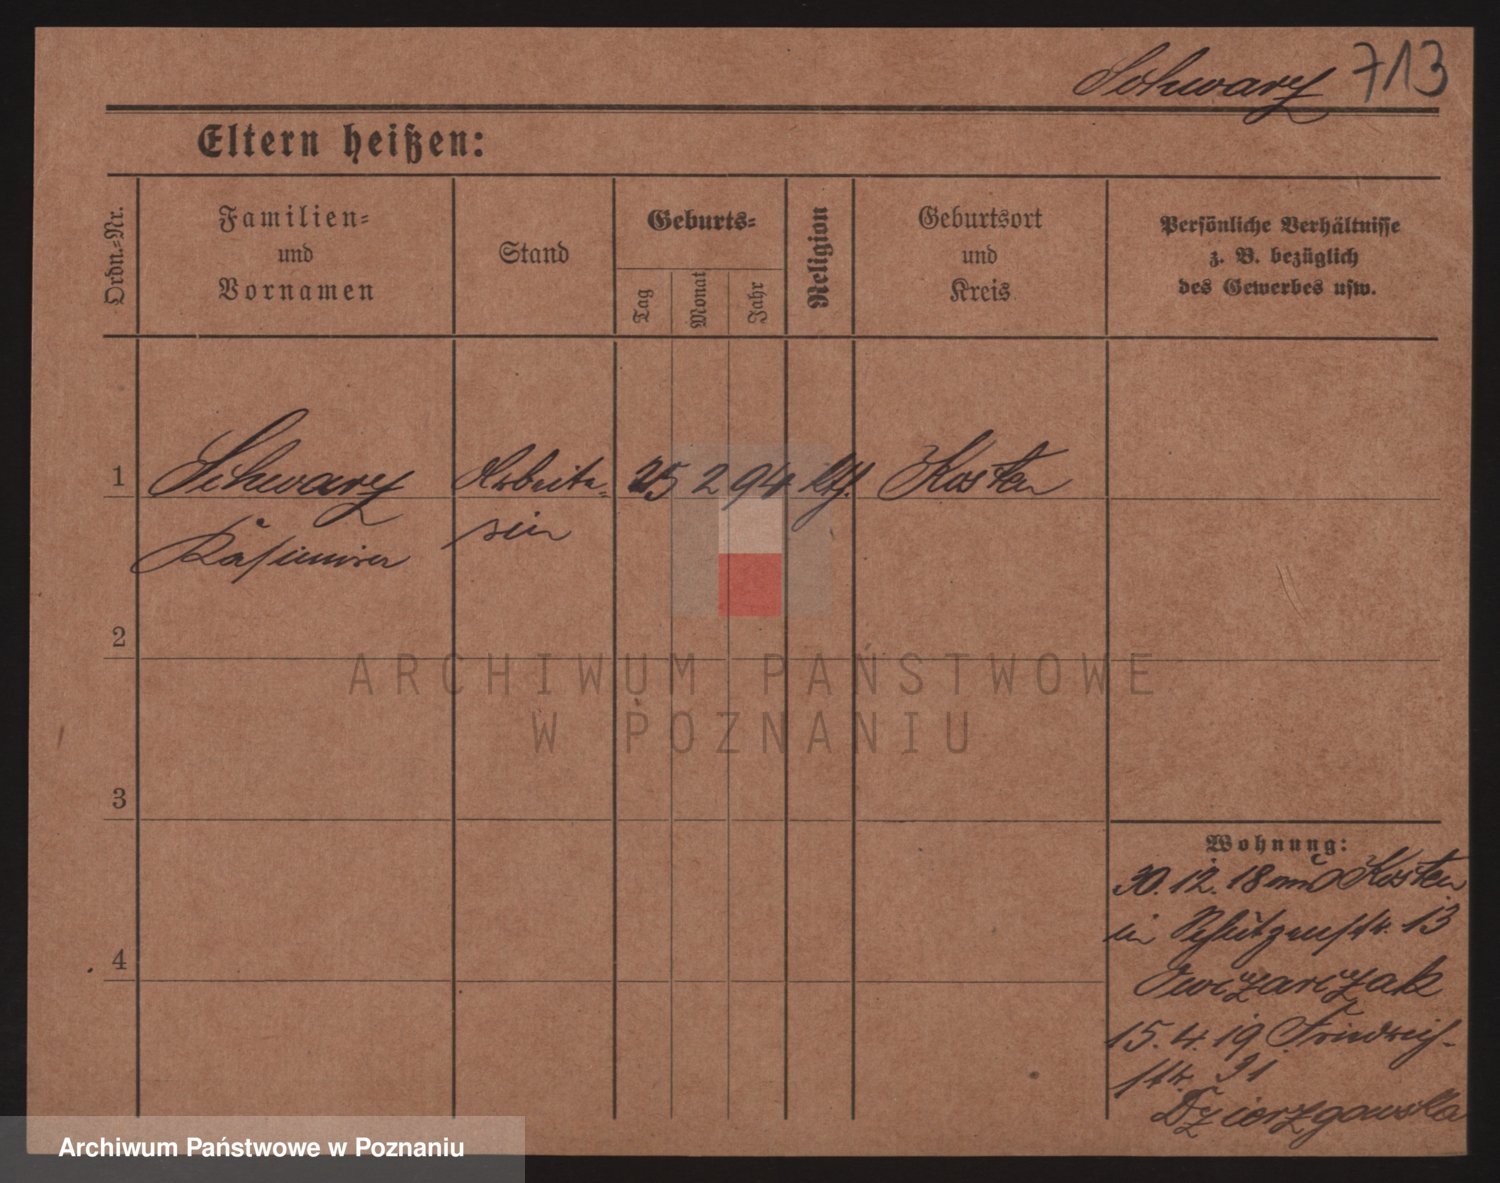 Schwarz 713
Eltern heißen:
Ordn.=Nr.
Familien=
und
Vornamen
Stand
Geburts=
Tag
Monat
Jahr
Religion
Geburtsort
und
Kreis
Persönliche Verhältnisse
z. B. bezüglich
des Gewerbes usw.
1 Schwarz Arbeite= 25 2 94 kth. Kosten
Kasimira rin
2
ARCHIWUM PAŃSTWOWE
W POZNANIU
3
Wohnung:
30.12.18 aus Kosten
in Schützenstr. 13
4
Owczarczak
15.4.19 Friedrich-
str. 31
Dzierzgowska
Archiwum Państwowe w Poznaniu